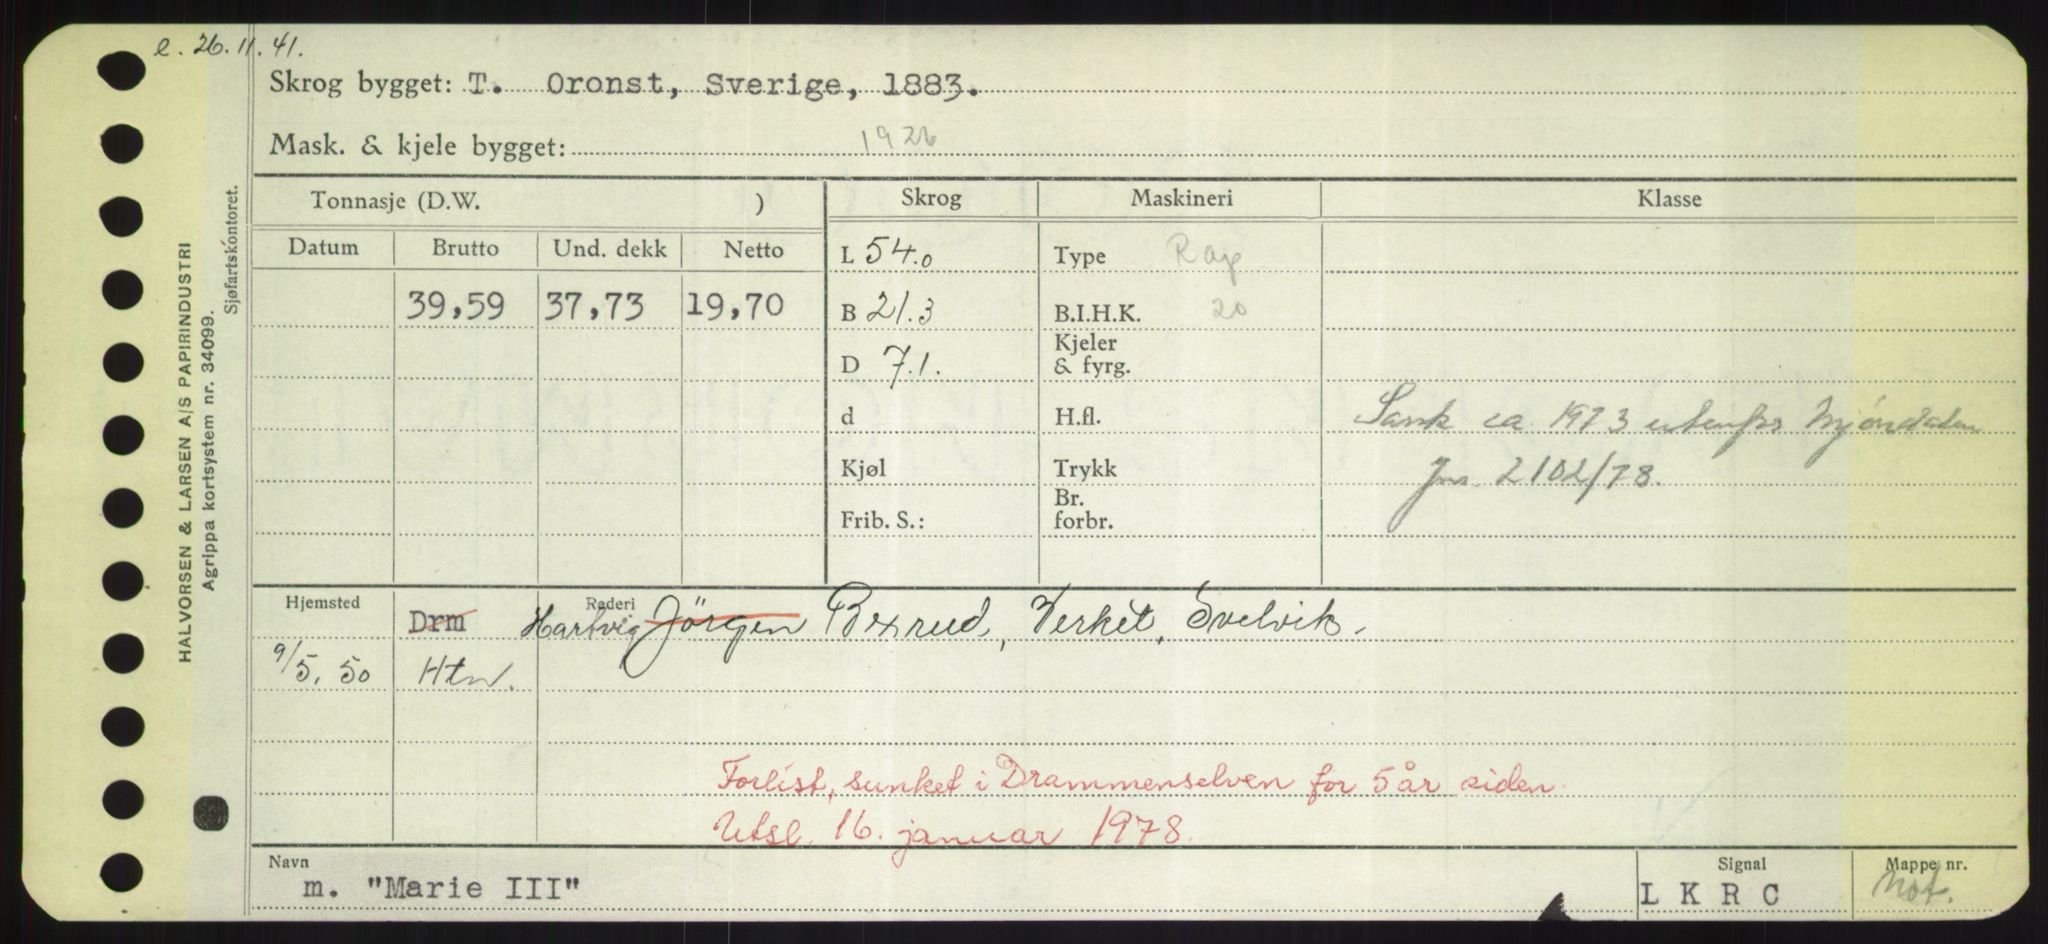 e. 26.11.41.
Skrog bygget: T. Oronst, Sverige, 1883.
Mask. & kjele bygget: 1926
Tonnasje (D.W. ) Skrog Maskineri Klasse
Datum Brutto Und. dekk Netto
L 54.0 Type
39,59 37,73 19,70
B 21.3 B.I.H.K. 20
D 7.1. Kjeler & fyrg.
d H.fl. Sank ca 1973 utenfor Mjöndalen
Kjøl Trykk Jnr. 2102/78.
Frib. S.: Br. forbr.
Hjemsted Rederi
Drm Hartvig Jörgen Bexrud, Verket, Svelvik.
9/5. 50 Htn.
Forlist, sunket i Drammenselven for 5 år siden
Utsl. 16. januar 1978.
Navn Signal Mappe nr.
m. "Marie III" L K R C Mot.
HALVORSEN & LARSEN A/S PAPIRINDUSTRI
Agrippa kortsystem nr. 34099.
Sjøfartskontoret.